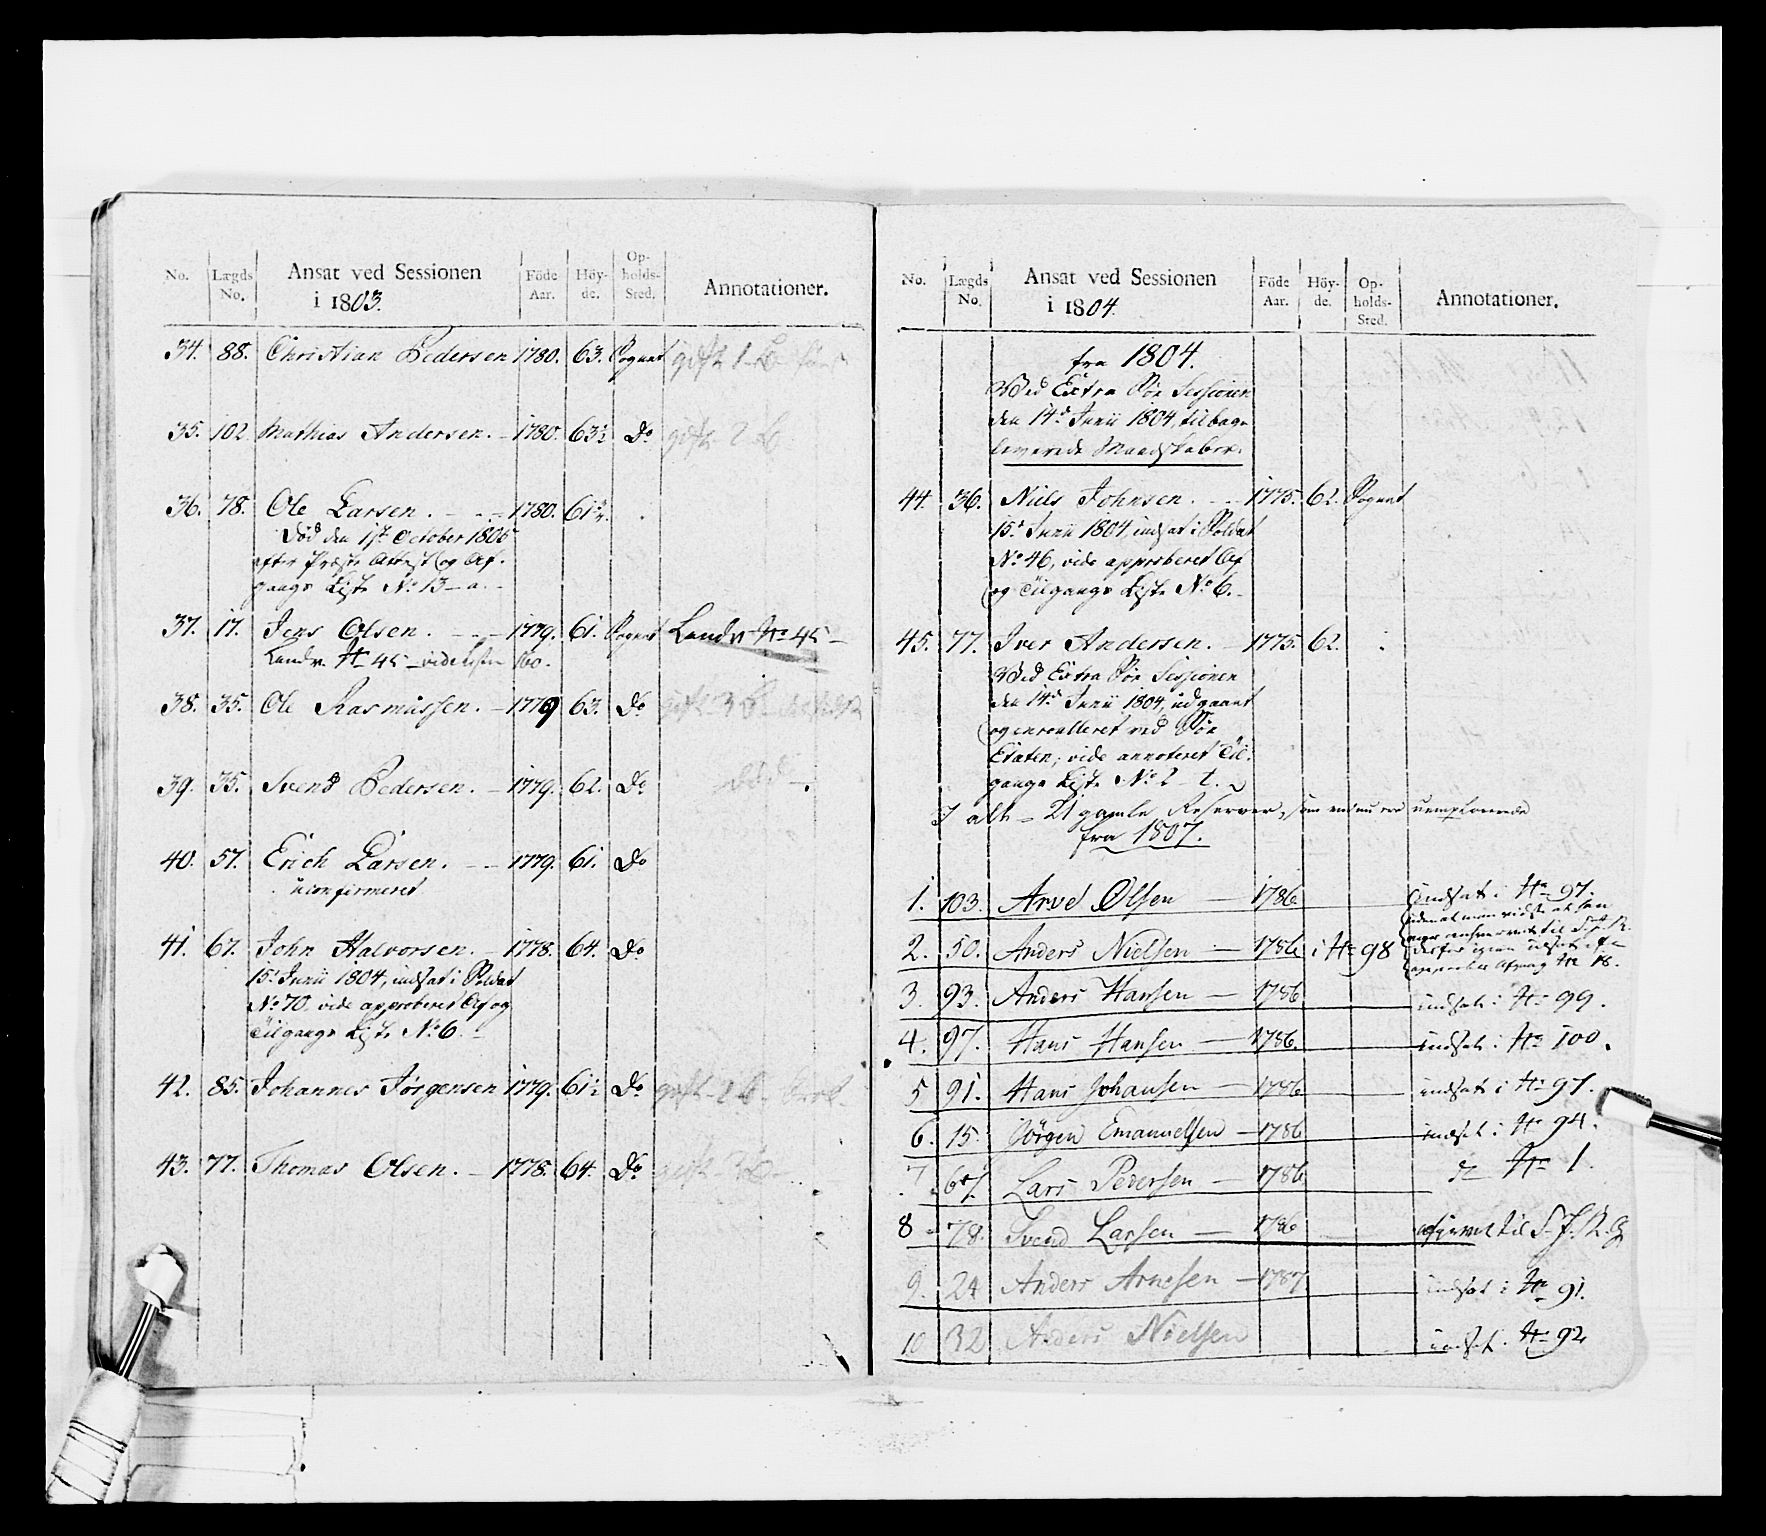 No. Lægds No. Ansat ved Sessionen i 1803. Föde Aar. Höyde. Opholds-Sted. Annotationer.
34. 88. Christian Pedersen 1780. 63. Sognet gift 1 B
35. 102. Mathias Andersen. 1780. 63½ Do gift 2 B
36. 78. Ole Larsen. 1780. 61½.
Död den 1ste October 1805
efter Præste Attest og Af-
gangs Liste No 13 a.
37. 17. Jens Olsen. 1779. 61. Sognet Landv. No 45
Landv. No 45 vide Listen
38. 35. Ole Rasmussen. 1779 63. Do gift 3 B
39. 35. Svend Pedersen. 1779. 62. Do död
40. 57. Erich Larsen. 1779. 61. Do
uconfirmeret
41. 67. John Halvorsen. 1778. 64. Do
15d Junii 1804, indsat i Soldat
No 70, vide approberet Af og
Tilgangs Liste No 6.
42. 85. Johannes Jörgensen 1779. 61½ Do gift 2 B
43. 77. Thomas Olsen. 1778. 64. Do gift 3 B
No. Lægds No. Ansat ved Sessionen i 1804. Föde Aar. Höyde. Opholds-Sted. Annotationer.
fra 1804.
Ved Extra Söe Sessionen
den 14d Junii 1804, tilbage
leverede Mandskaber.
44. 36. Niels Johnsen. 1775. 62. Sognet
15d Junii 1804, indsat i Soldat
No 46, vide approberet Af
og Tilgangs Liste No 6.
45. 77. Iver Andersen. 1775. 62.
Ved Extra Söe Sessionen
den 14d Junii 1804, udgaaet
og enroulleret ved Söe
Etaten, vide annoteret Til-
gangs Liste No 2 t.
I alt 21 gamle Reserver, som endnu ere
fra 1807.
1. 103. Arve Olsen 1786 indsat i No 97.
2. 50. Anders Nielsen 1786 i No 98
3. 93. Anders Hansen 1786 indsat i No 99.
4. 97. Hans Hansen 1786. indsat i No 100.
5 91. Hans Johansen 1786 indsat i No 97.
6. 15. Jörgen Emanuelsen 1786 indsat i No 94.
7 67. Lars Pedersen 1786 do No 1.
8 78. Svend Larsen 1786 til S. J. R.
9. 24 Anders Arnesen 1787 indsat i No 91.
10 32 Anders Nielsen indsat i No 92